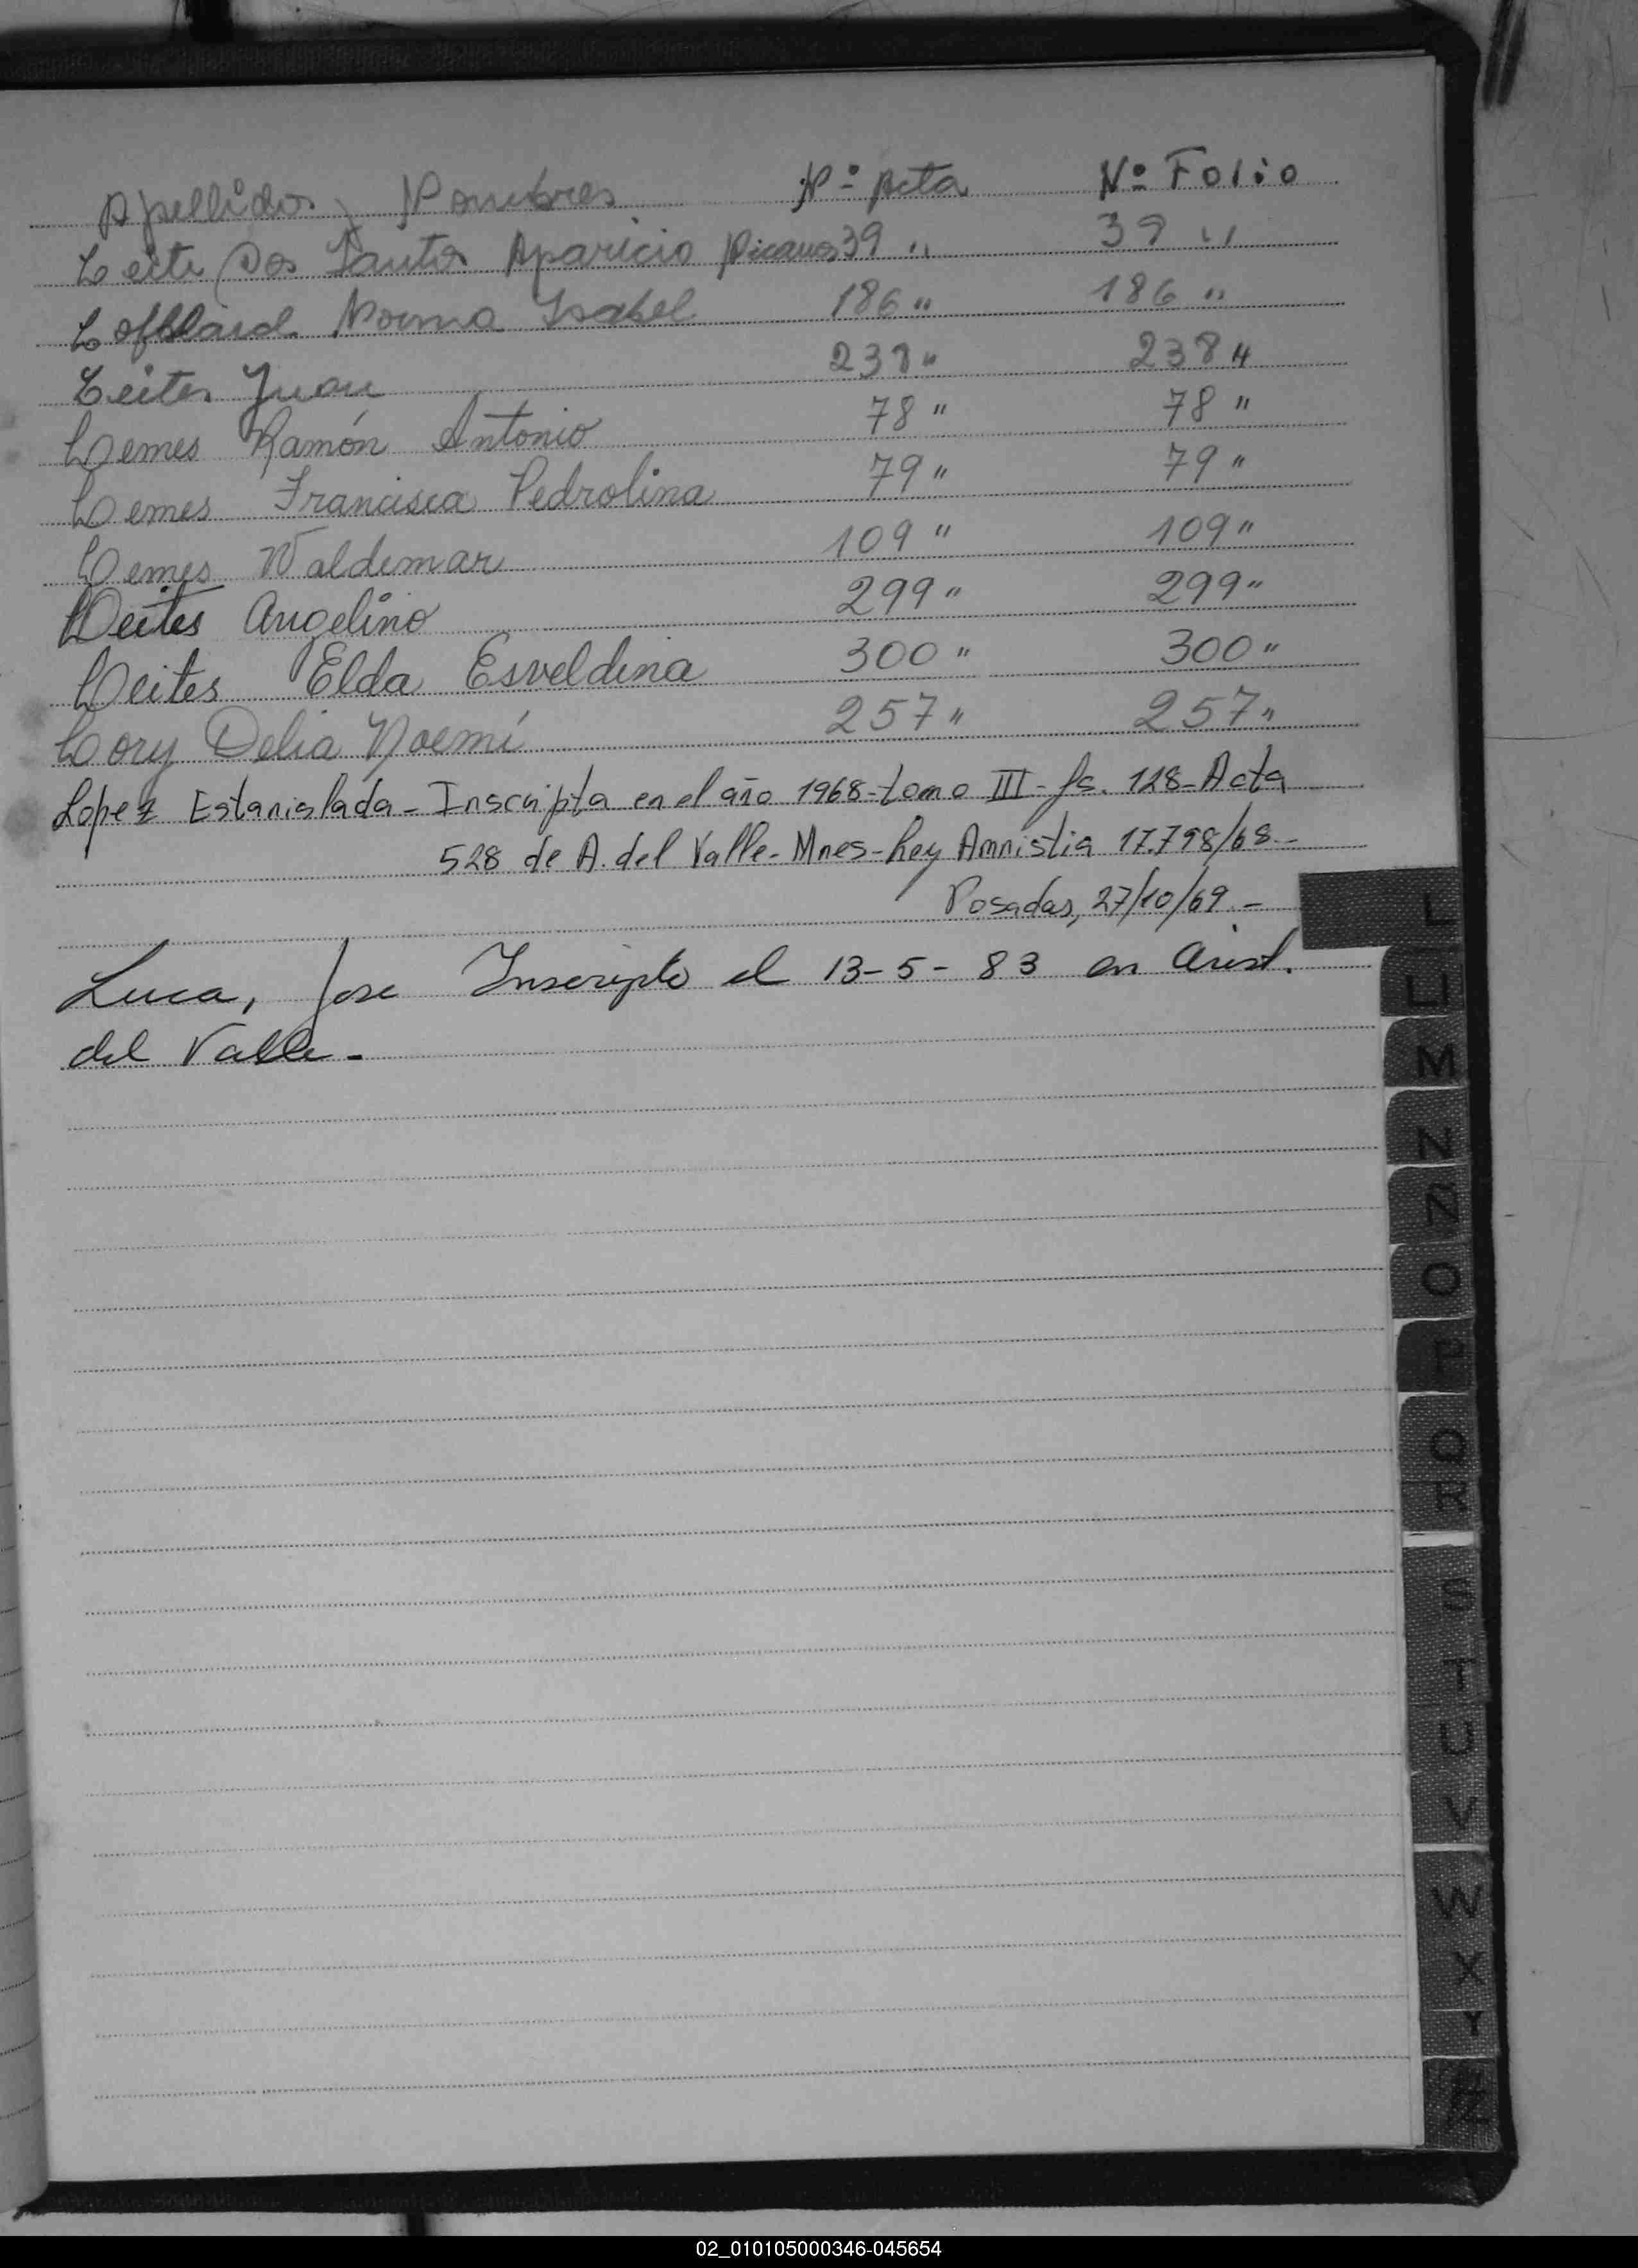 Apellidos y Nombres Nº Acta Nº Folio
Leite Dos Santos Aparicio 39 " 39 "
Norma Isabel 186 " 186 "
Leites Juan 238 " 238 "
Lemes Ramón Antonio 78 " 78 "
Lemes Francisca Pedrolina 79 " 79 "
Lemes Waldemar 109 " 109 "
Leites Angelino 299 " 299 "
Leites Elda Esveldina 300 " 300 "
Lory Delia Noemí 257 " 257 "
Lopez Estanislada - Inscripta en el año 1968 - tomo III - fs. 128 - Acta
528 de A. del Valle - Mnes - Ley Amnistia 17.798/68 -
Posadas, 27/10/69 -
Luca, Jose Inscripto el 13-5-83 en Arist.
del Valle -
L
LL
M
N
Ñ
O
P
Q
R
S
T
U
V
W
X
Y
Z
02_010105000346-045654